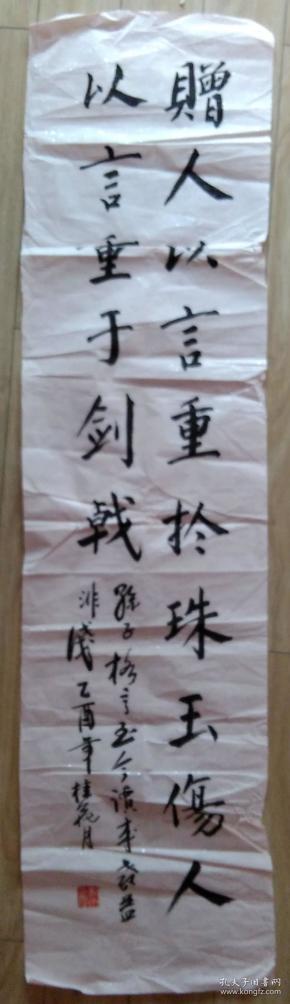 贈人以言重扵珠玉傷人
以言重于劍戟
孫子格言至今讀来啟益
非淺乙酉年桂花月
孔夫子旧书网
www.kongfz.com